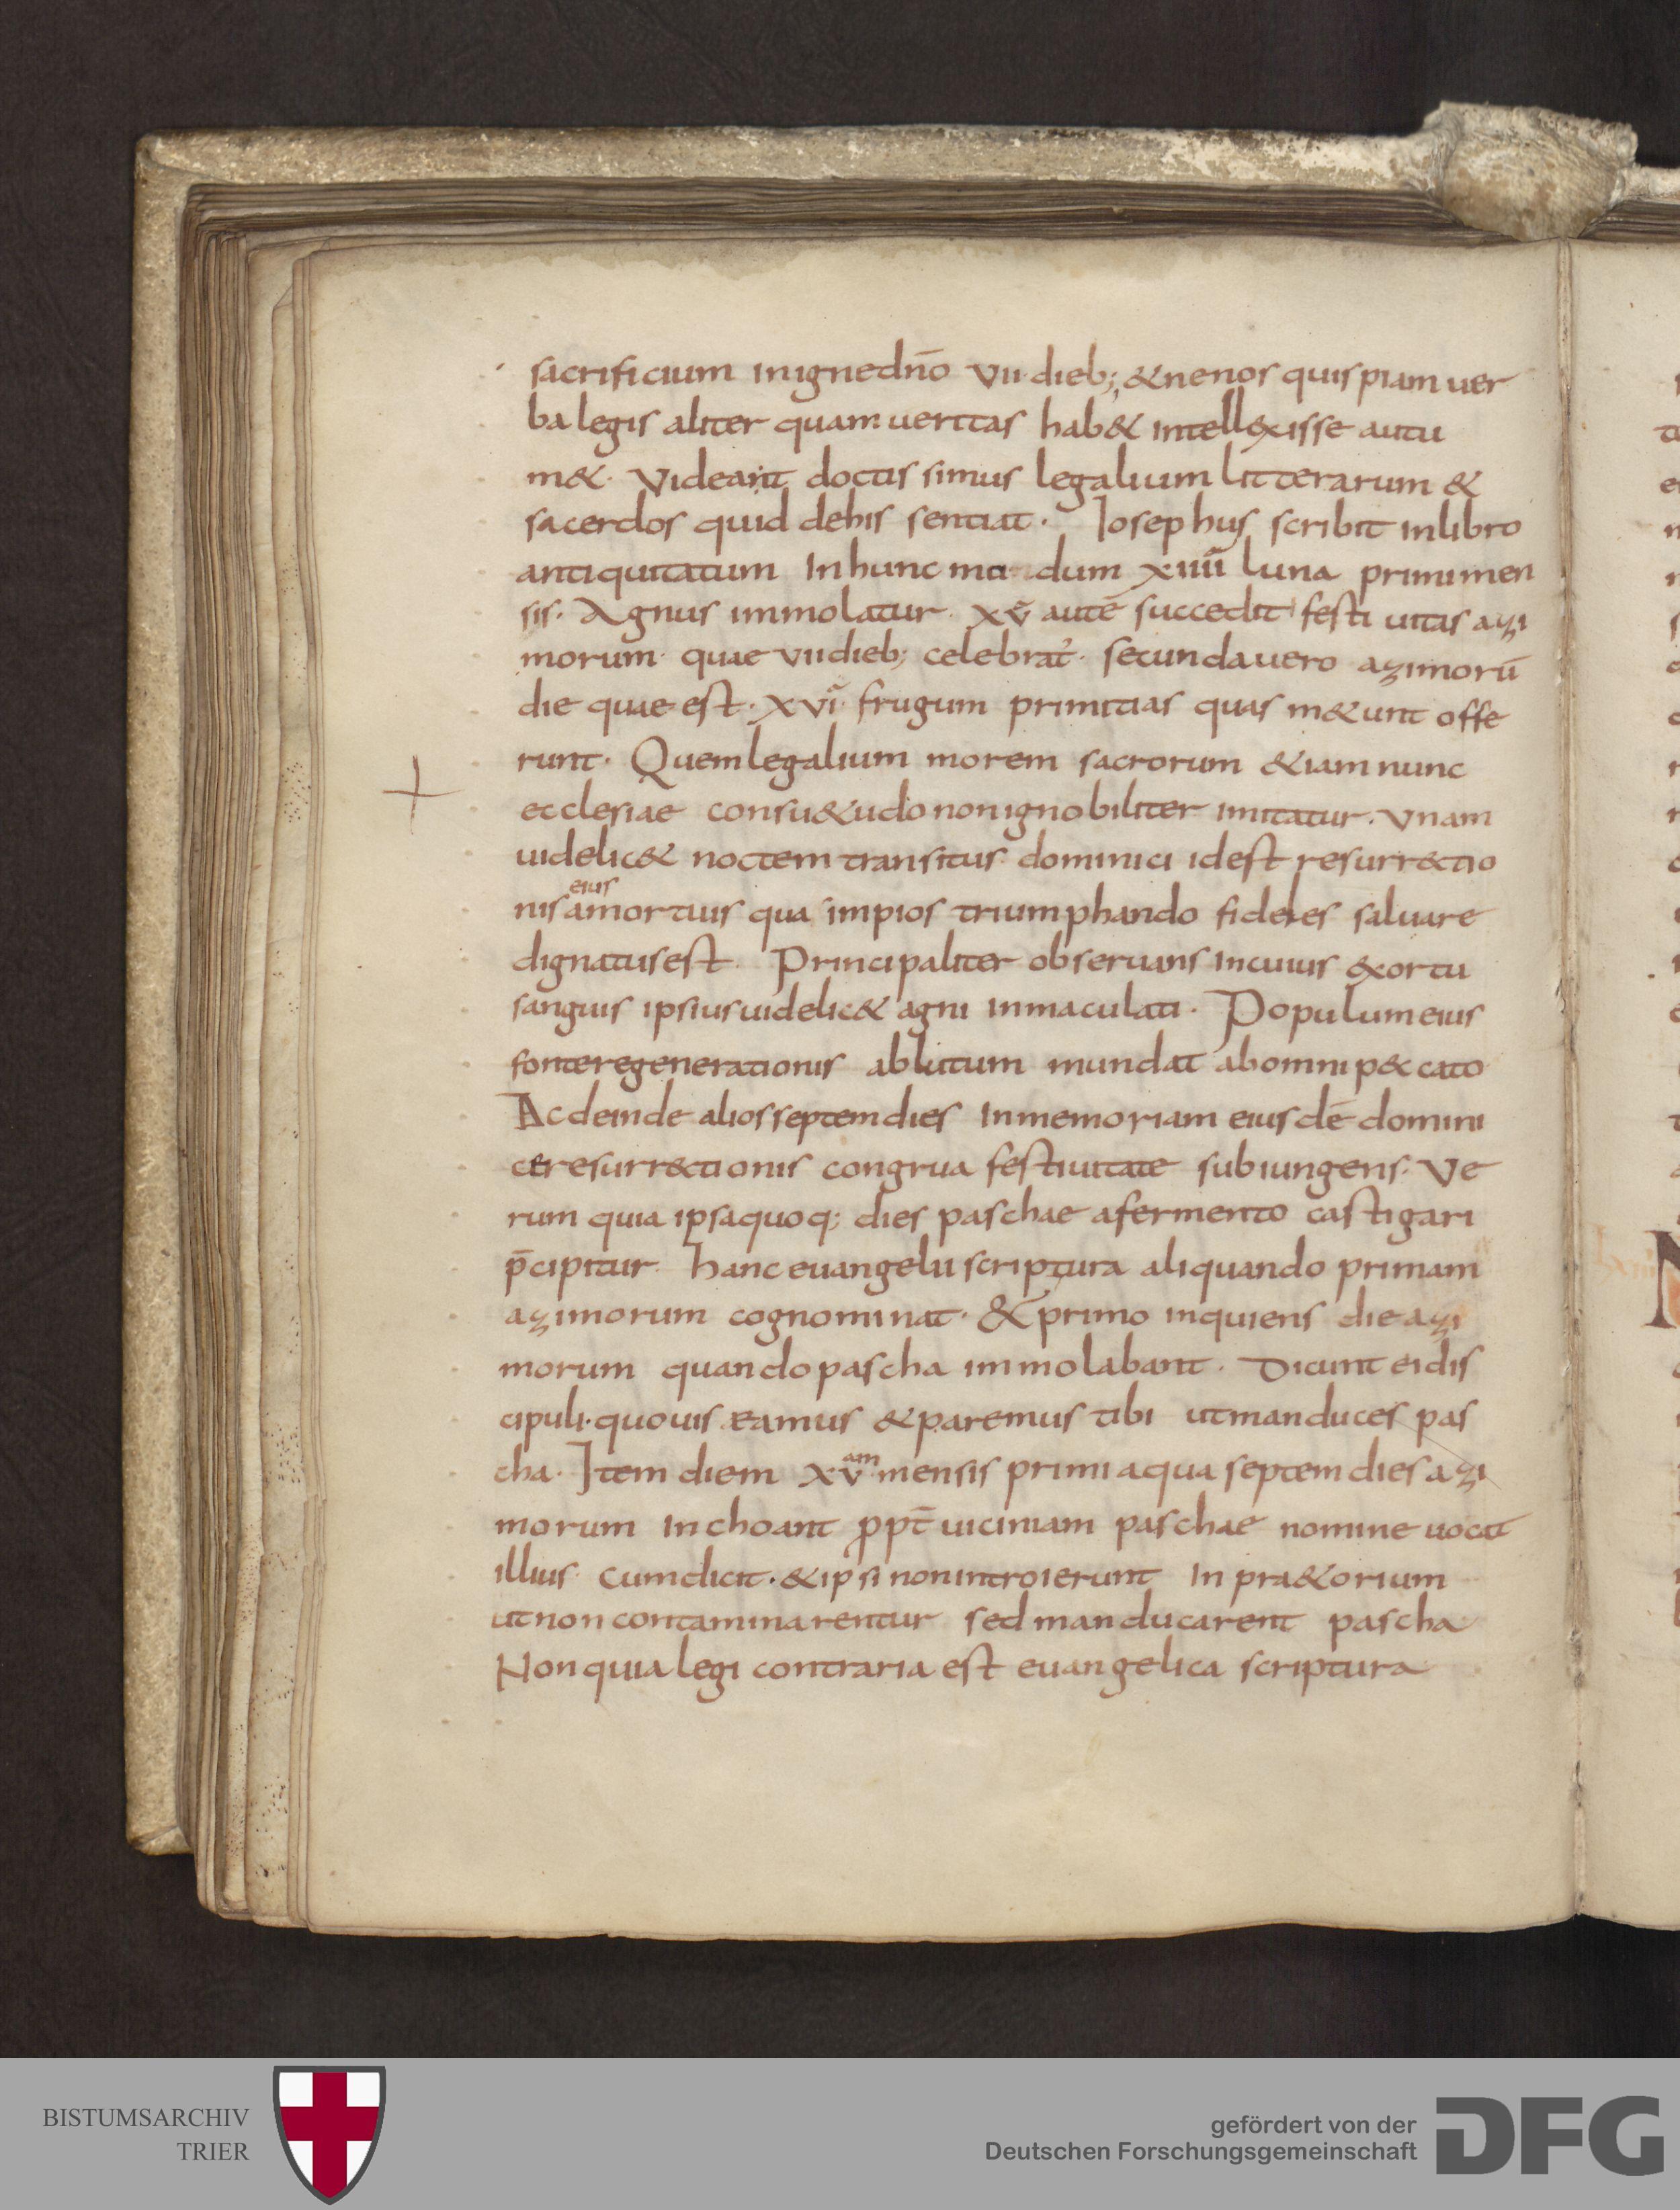 sacrificium inignedno̅ vii·dieb; &nenos quispiam uer
ba legis aliter quam ueritas hab& intell&xisse autu
m&· Videant doctissimus legalium litterarum &
sacerdos quid dehis sentiat· Iosephus scribit inlibro
antiquitatum Inhunc mo dum xiiii luna primi men
sis· Agnus immolatur· xv autē succedit festiuitas azi
morum· quae viidieb; celebrat᷑· secundauero azimorū
die quae est· xvi frugum primitias quas m&unt offe
runt· Quemlegalium morem sacrorum &iam nunc
ecclesiae consu&udo nonignobiliter imitatur· Vnam
uidelic& noctem transitus dominici idest resurr&ctio
nis eius amortuis qua impios triumphando fideles saluare
dignatusest· Principaliter obseruans Incuius &xortu
sanguis ipsiusuidelic& agni inmaculati· Populum eius
fonteregenerationis ablutum mundat abomni p&ccato
Ac deinde aliosseptemdies Inmemoriam eiusdē domini
cęresurr&ctionis congrua festiuitate subiungens· Ve
rum quia ipsaquoq; dies paschae afermento castigari
p̄cipitur· hanc euangelii scriptura aliquando primam
azimorum cognominat· & primo inquiens die azi
morum quando pascha immolabant· Dicunt ei dis
cipuli· quouis eamus &paremus tibi utmanduces pas
cha· Item diem xvam mensis primi aqua septem dies azi
morum inchoant ꝓpt̄ uiciniam paschae nomine uocat
illius· cumdicit· &ipsi nonintroierunt In pra&orium
utnon contaminarentur sed manducarent pascha
Non quia legi contraria est euangelica scriptura
BISTUMSARCHIV
TRIER
gefördert von der
Deutschen Forschungsgemeinschaft
DFG